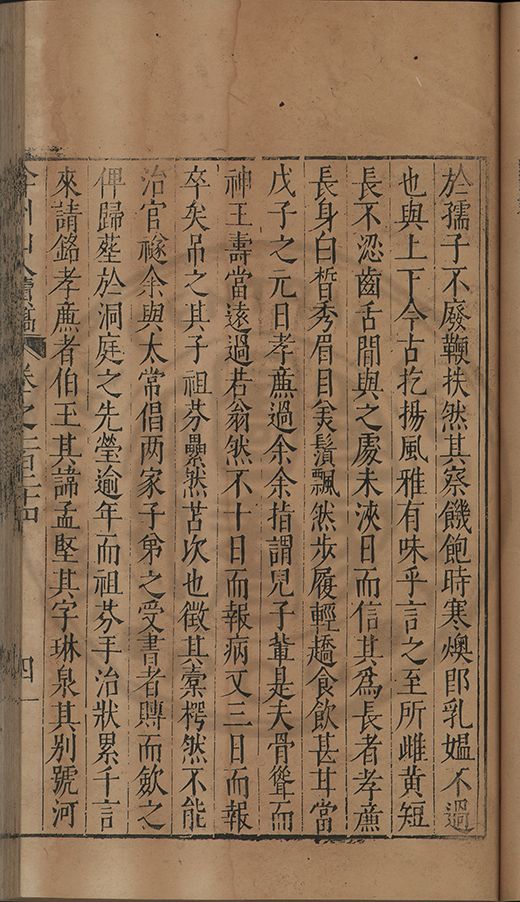 於孺子不廢鞭扶然其察饑飽時寒燠郎乳媪不過
也與上下今古扢揚風雅有味乎言之至所雌黃短
長不涊齒舌間與之處未浹日而信其爲長者孝廉
長身白皙秀眉目美鬚飄然步履輕趫食飲甚甘當
戊子之元日孝廉過余余指謂兒子輩是夫骨聳而
神王壽當遠過若翁然不十日而報病又三日而報
卒矣吊之其子祖芬纍然苫次也徵其槖愕然不能
治官襚余與太常倡两家子弟之受書者賻而歛之
俾歸塟於洞庭之先塋逾年而祖芬手治狀累千言
來請銘孝廉者伯王其諱孟堅其字琳泉其别號河
弇州山人續稿 卷之一百二十四 四